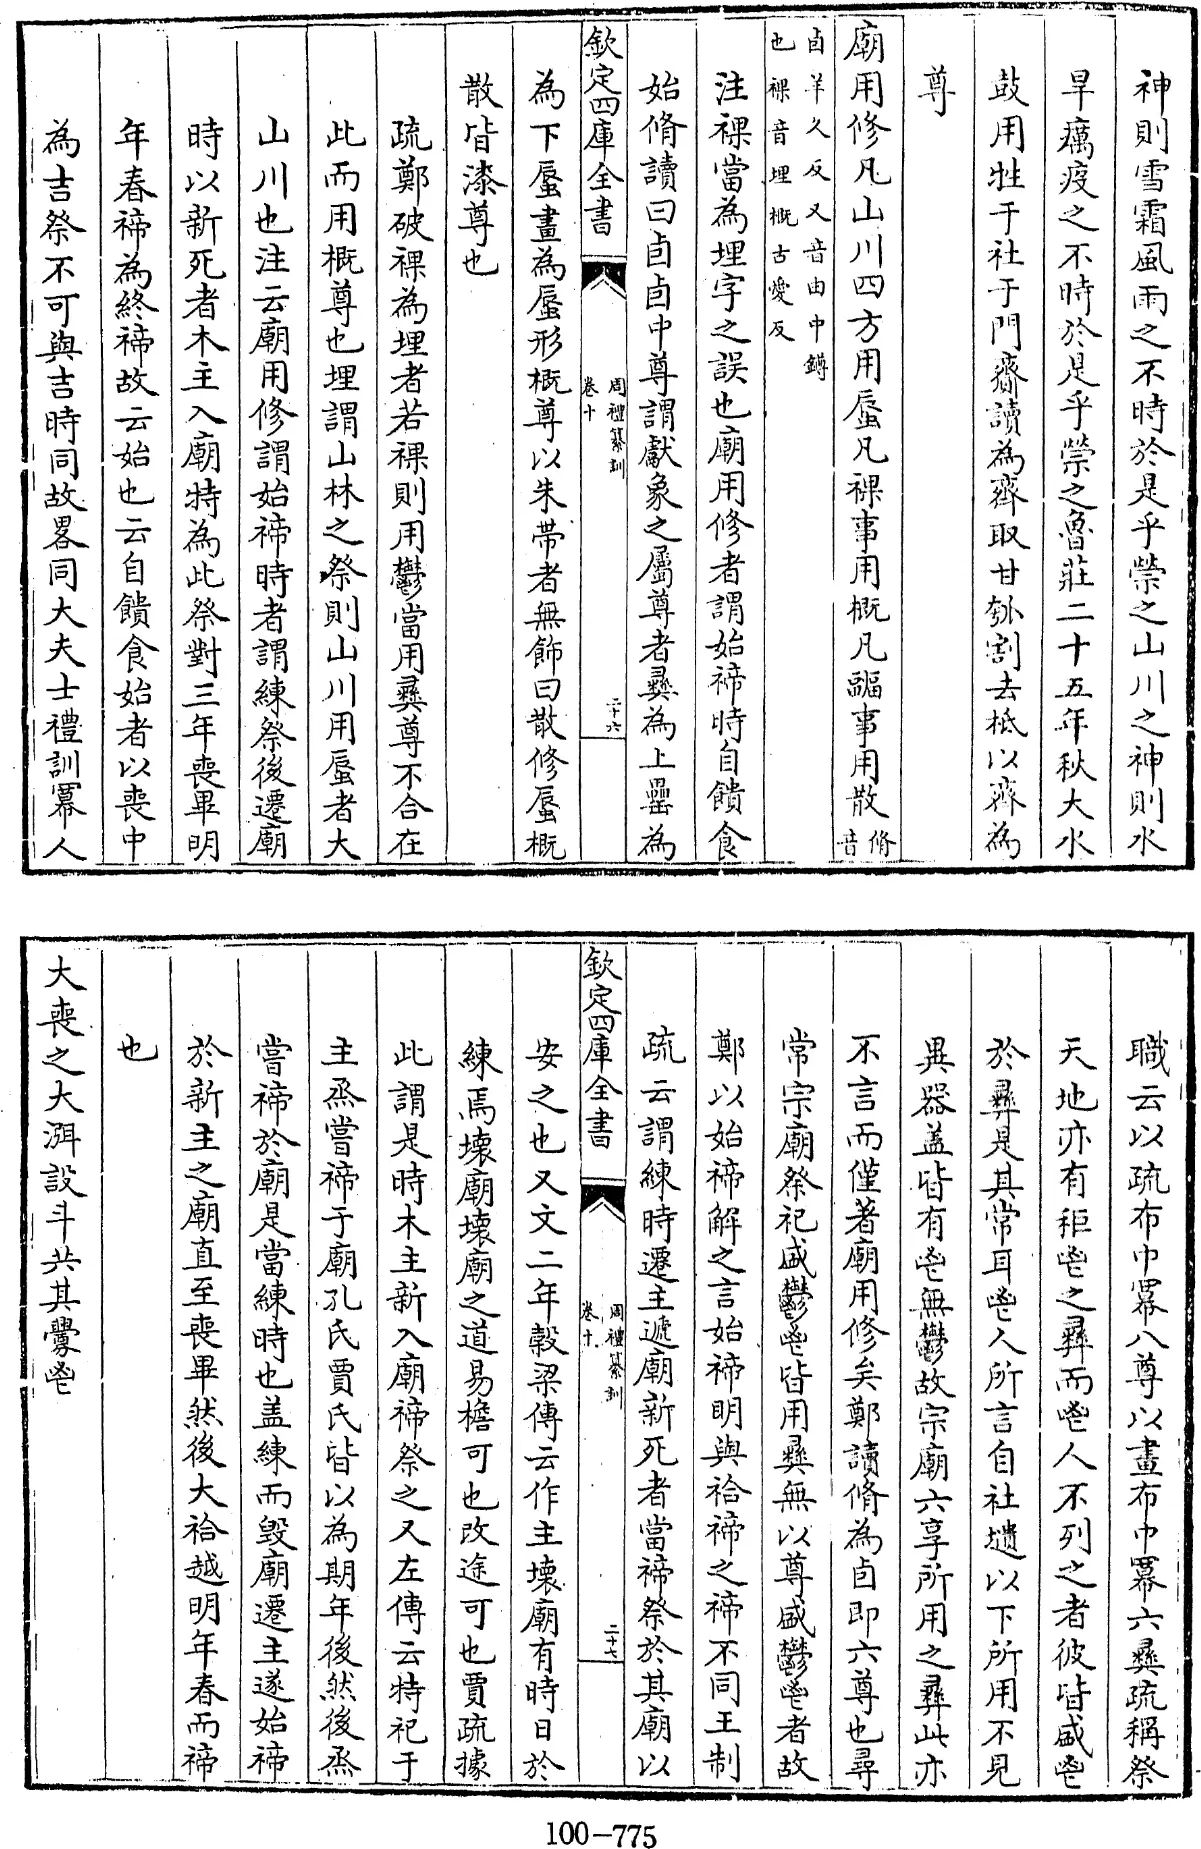 神則雪霜風雨之不時於是乎禜之山川之神則水
旱癘疫之不時於是乎禜之魯莊二十五年秋大水
鼓用牲于社于門齋讀為齊取甘瓠割去柢以齊為
尊
廟用修凡山川四方用蜃凡祼事用概凡疈事用散脩音
卣羊久反又音由中鐏
也祼音埋概古愛反
注祼當為埋字之誤也廟用修者謂始禘時自饋食
始脩讀曰卣卣中尊謂獻象之屬尊者彝為上罍為
欽定四庫全書
周禮纂訓
卷十
二十六
為下蜃畫為蜃形概尊以朱帶者無飾曰散修蜃概
散皆漆尊也
疏鄭破祼為埋者若祼則用鬱當用彝尊不合在
此而用概尊也埋謂山林之祭則山川用蜃者大
山川也注云廟用修謂始禘時者謂練祭後遷廟
時以新死者木主入廟特為此祭對三年喪畢明
年春禘為終禘故云始也云自饋食始者以喪中
為吉祭不可與吉時同故畧同大夫士禮訓冪人
職云以疏布巾冪八尊以畫布巾冪六彝疏稱祭
天地亦有秬鬯之彝而鬯人不列之者彼皆盛鬯
於彝是其常耳鬯人所言自社壝以下所用不見
異器盖皆有鬯無鬱故宗廟六享所用之彝此亦
不言而僅著廟用修矣鄭讀脩為卣即六尊也尋
常宗廟祭祀盛鬱鬯皆用彝無以尊盛鬱鬯者故
鄭以始禘解之言始禘明與祫禘之禘不同王制
疏云謂練時遷主遞廟新死者當禘祭於其廟以
欽定四庫全書
周禮纂訓
卷十
二十七
安之也又文二年穀梁傳云作主壞廟有時日於
練焉壞廟壞廟之道易檐可也改途可也賈疏據
此謂是時木主新入廟禘祭之又左傳云特祀于
主烝嘗禘于廟孔氏賈氏皆以為期年後然後烝
嘗禘於廟是當練時也盖練而毀廟遷主遂始禘
於新主之廟直至喪畢然後大祫越明年春而禘
也
大喪之大渳設斗共其釁鬯
100-775